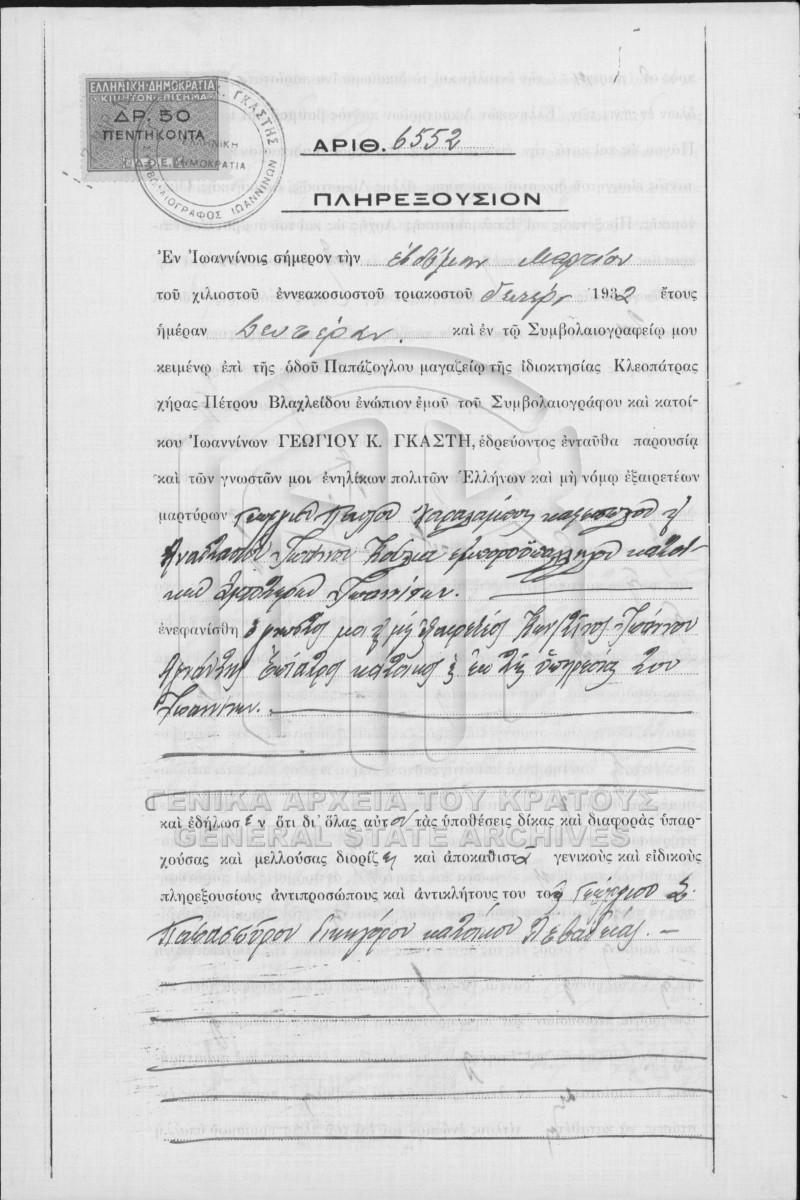 ΕΛΛΗΝΙΚΗ·ΔΗΜΟΚΡΑΤΙΑ
ΔΡ. 50
ΠΕΝΤΗΚΟΝΤΑ
ΓΚΑΣΤΗΣ
ΕΛΛΗΝΙΚΗ
ΔΗΜΟΚΡΑΤΙΑ
ΣΥΜΒΟΛΑΙΟΓΡΑΦΟΣ ΙΩΑΝΝΙΝΩΝ
ΑΡΙΘ. 6552
ΠΛΗΡΕΞΟΥΣΙΟΝ
Ἐν Ἰωαννίνοις σήμερον τὴν ἑβδόμην Μαρτίου
τοῦ χιλιοστοῦ ἐννεακοσιοστοῦ τριακοστοῦ δευτέρ 1932 ἔτους
ἡμέραν Δευτέραν. καὶ ἐν τῷ Συμβολαιογραφείῳ μου
κειμένῳ ἐπὶ τῆς ὁδοῦ Παπάζογλου μαγαζείῳ τῆς ἰδιοκτησίας Κλεοπάτρας
χήρας Πέτρου Βλαχλείδου ἐνώπιον ἐμοῦ τοῦ Συμβολαιογράφου καὶ κατοί-
κου Ἰωαννίνων ΓΕΩΓΙΟΥ Κ. ΓΚΑΣΤΗ, ἑδρεύοντος ἐνταῦθα παρουσίᾳ
καὶ τῶν γνωστῶν μοι ἐνηλίκων πολιτῶν Ἑλλήνων καὶ μὴ νόμῳ ἐξαιρετέων
μαρτύρων Γεωργίου Παύλου
Ἀναστασίου Ἰωάννου ἐμποροϋπαλλήλου κατοί-
κων ἀμφοτέρων Ἰωαννίνων.
ἐνεφανίσθη ὁ γνωστός μοι καὶ μὴ ἐξαιρετέος Κων/τῖνος Ἰωάννου
κάτοικος
Ἰωαννίνων.
ΓΕΝΙΚΑ ΑΡΧΕΙΑ ΤΟΥ ΚΡΑΤΟΥΣ
καὶ ἐδήλωσεν ὅτι δι᾽ ὅλας αὐτοῦ τὰς ὑποθέσεις δίκας καὶ διαφορὰς ὑπαρ-
GENERAL STATE ARCHIVES
χούσας καὶ μελλούσας διορίζει καὶ ἀποκαθιστᾷ γενικοὺς καὶ εἰδικοὺς
πληρεξουσίους ἀντιπροσώπους καὶ ἀντικλήτους του τὸν Γεώργιον Σ.
Παπασπύρου δικηγόρον κάτοικον Λεβαδείας.